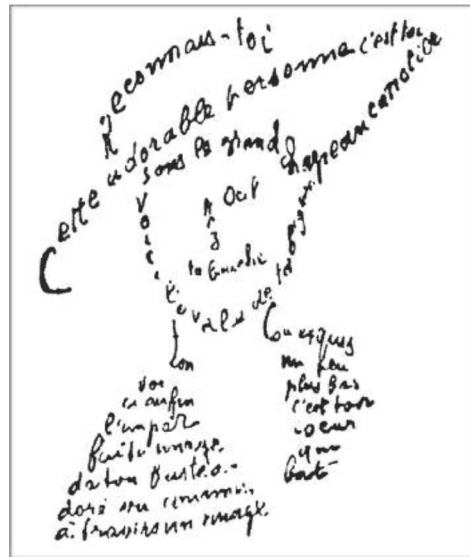 Reconnais-toi
Cette adorable personne c'est toi
sous le grand chapeau canotier
Oeil
Nez
ta bouche
Voici l'ovale de ta
Ton
Cou exquis
voi
ci enfin
l'impar
faite image
de ton buste a
doré vu comme
à travers un nuage
un peu
plus bas
c'est ton
coeur
qui
bat